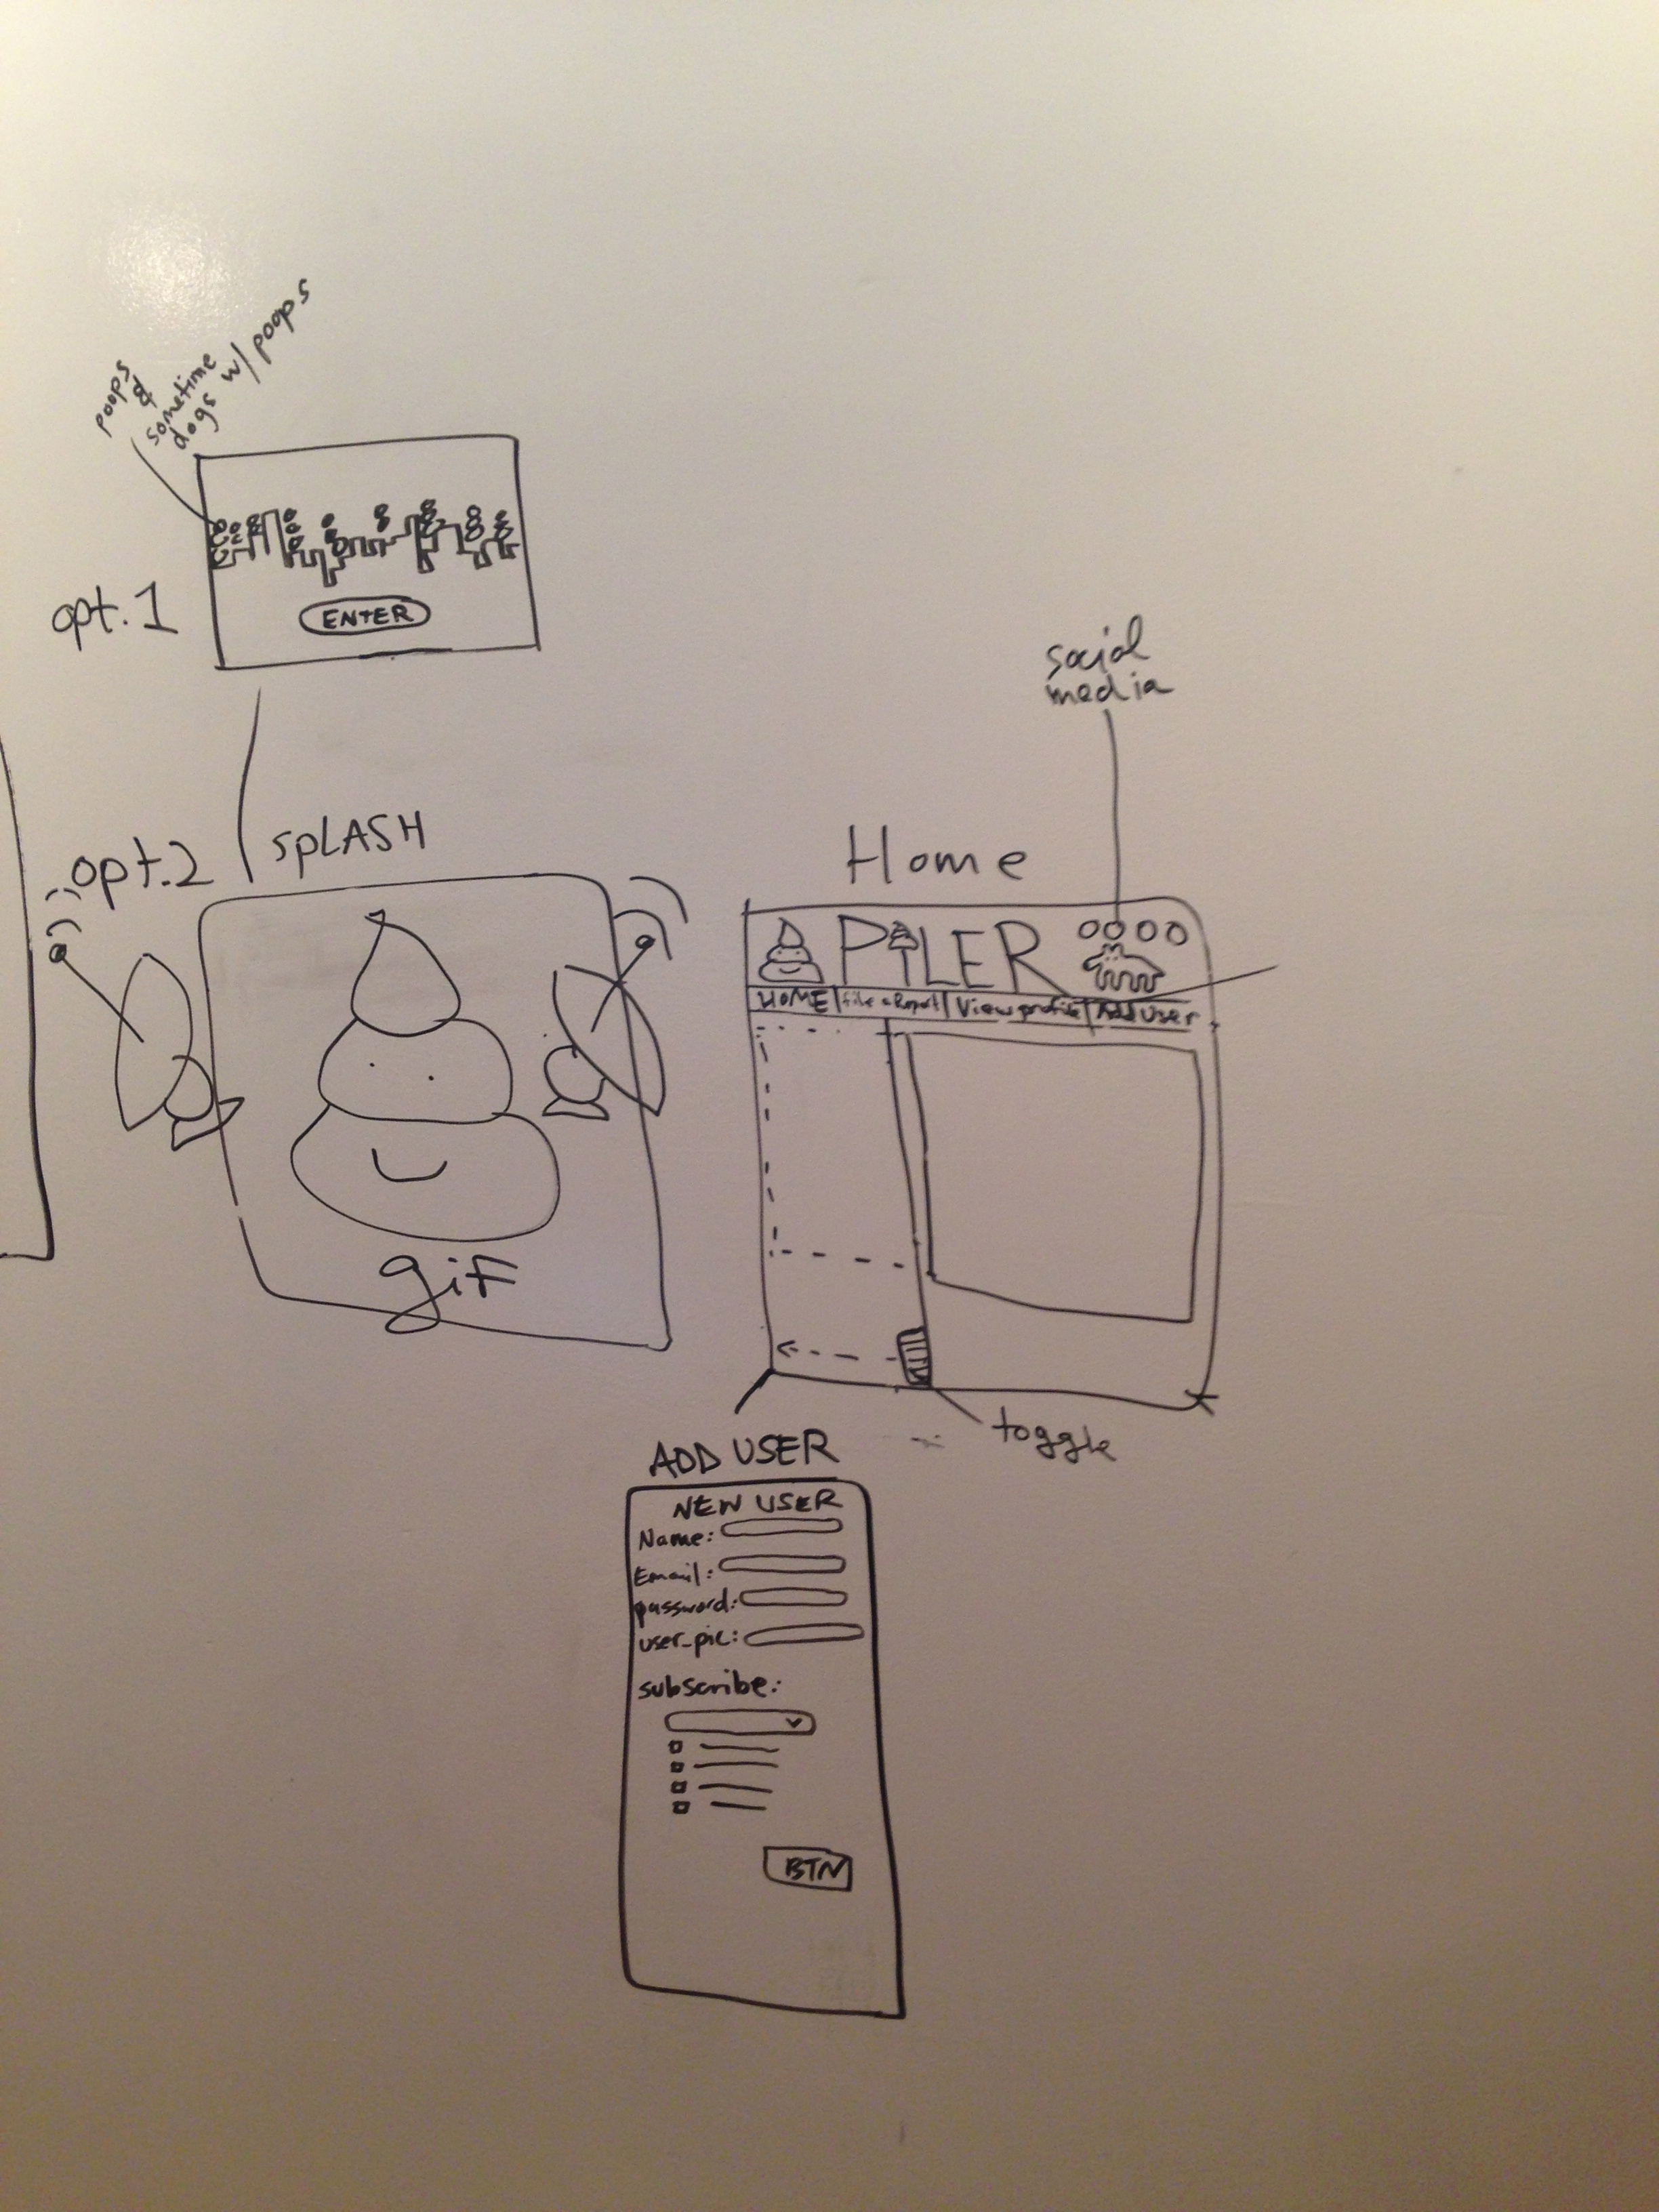 poops
&
sometime
dogs w/ poops
ENTER
opt.1
opt.2
SPLASH
gif
social
media
Home
PILER
HOME | file a Report | View profile | Add User
toggle
ADD USER
NEW USER
Name:
Email:
password:
user_pic:
subscribe:
BTN